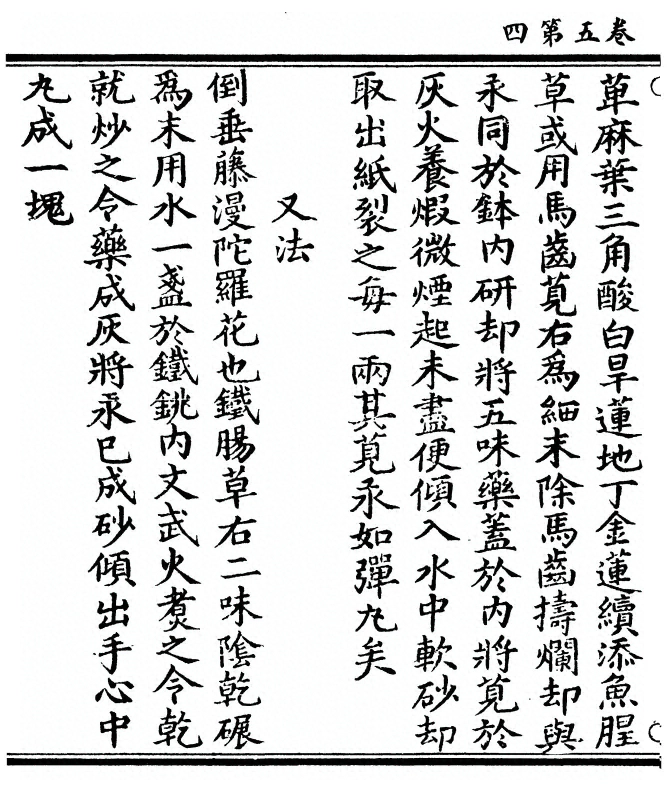 卷五第四
萆麻葉三角酸白旱蓮地丁金蓮續添魚腥
草或用馬齒莧右為細末除馬齒擣爛却與
汞同於鉢內研却將五味藥蓋於內將莧於
灰火養煆微煙起未盡便傾入水中軟砂却
取出紙裂之每一兩其莧汞如彈丸矣
又法
倒垂藤漫陀羅花也鐵腸草右二味陰乾碾
為末用水一盞於鐵銚內文武火煑之令乾
就炒之令藥成灰將汞已成砂傾出手心中
丸成一塊